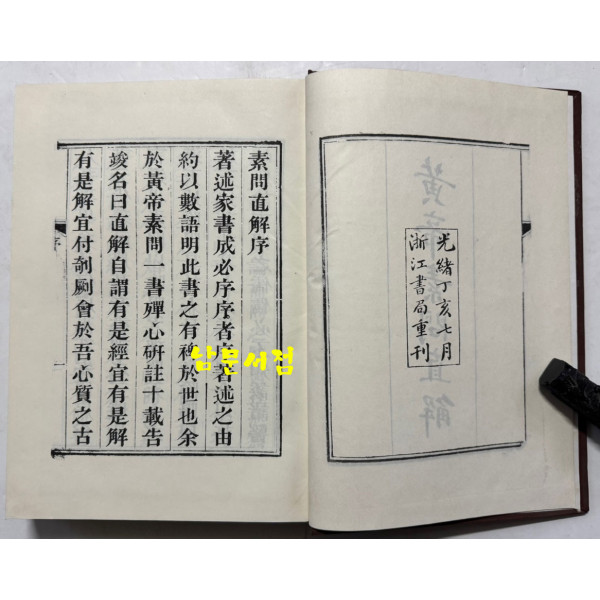 光緒丁亥七月
浙江書局重刊
素問直解序
著述家書成必序序者序著述之由
約以數語明此書之有裨於世也余
於黃帝素問一書殫心研註十載告
竣名曰直解自謂有是經宜有是解
有是解宜付剞劂會於吾心質之古
序
一
남문서점